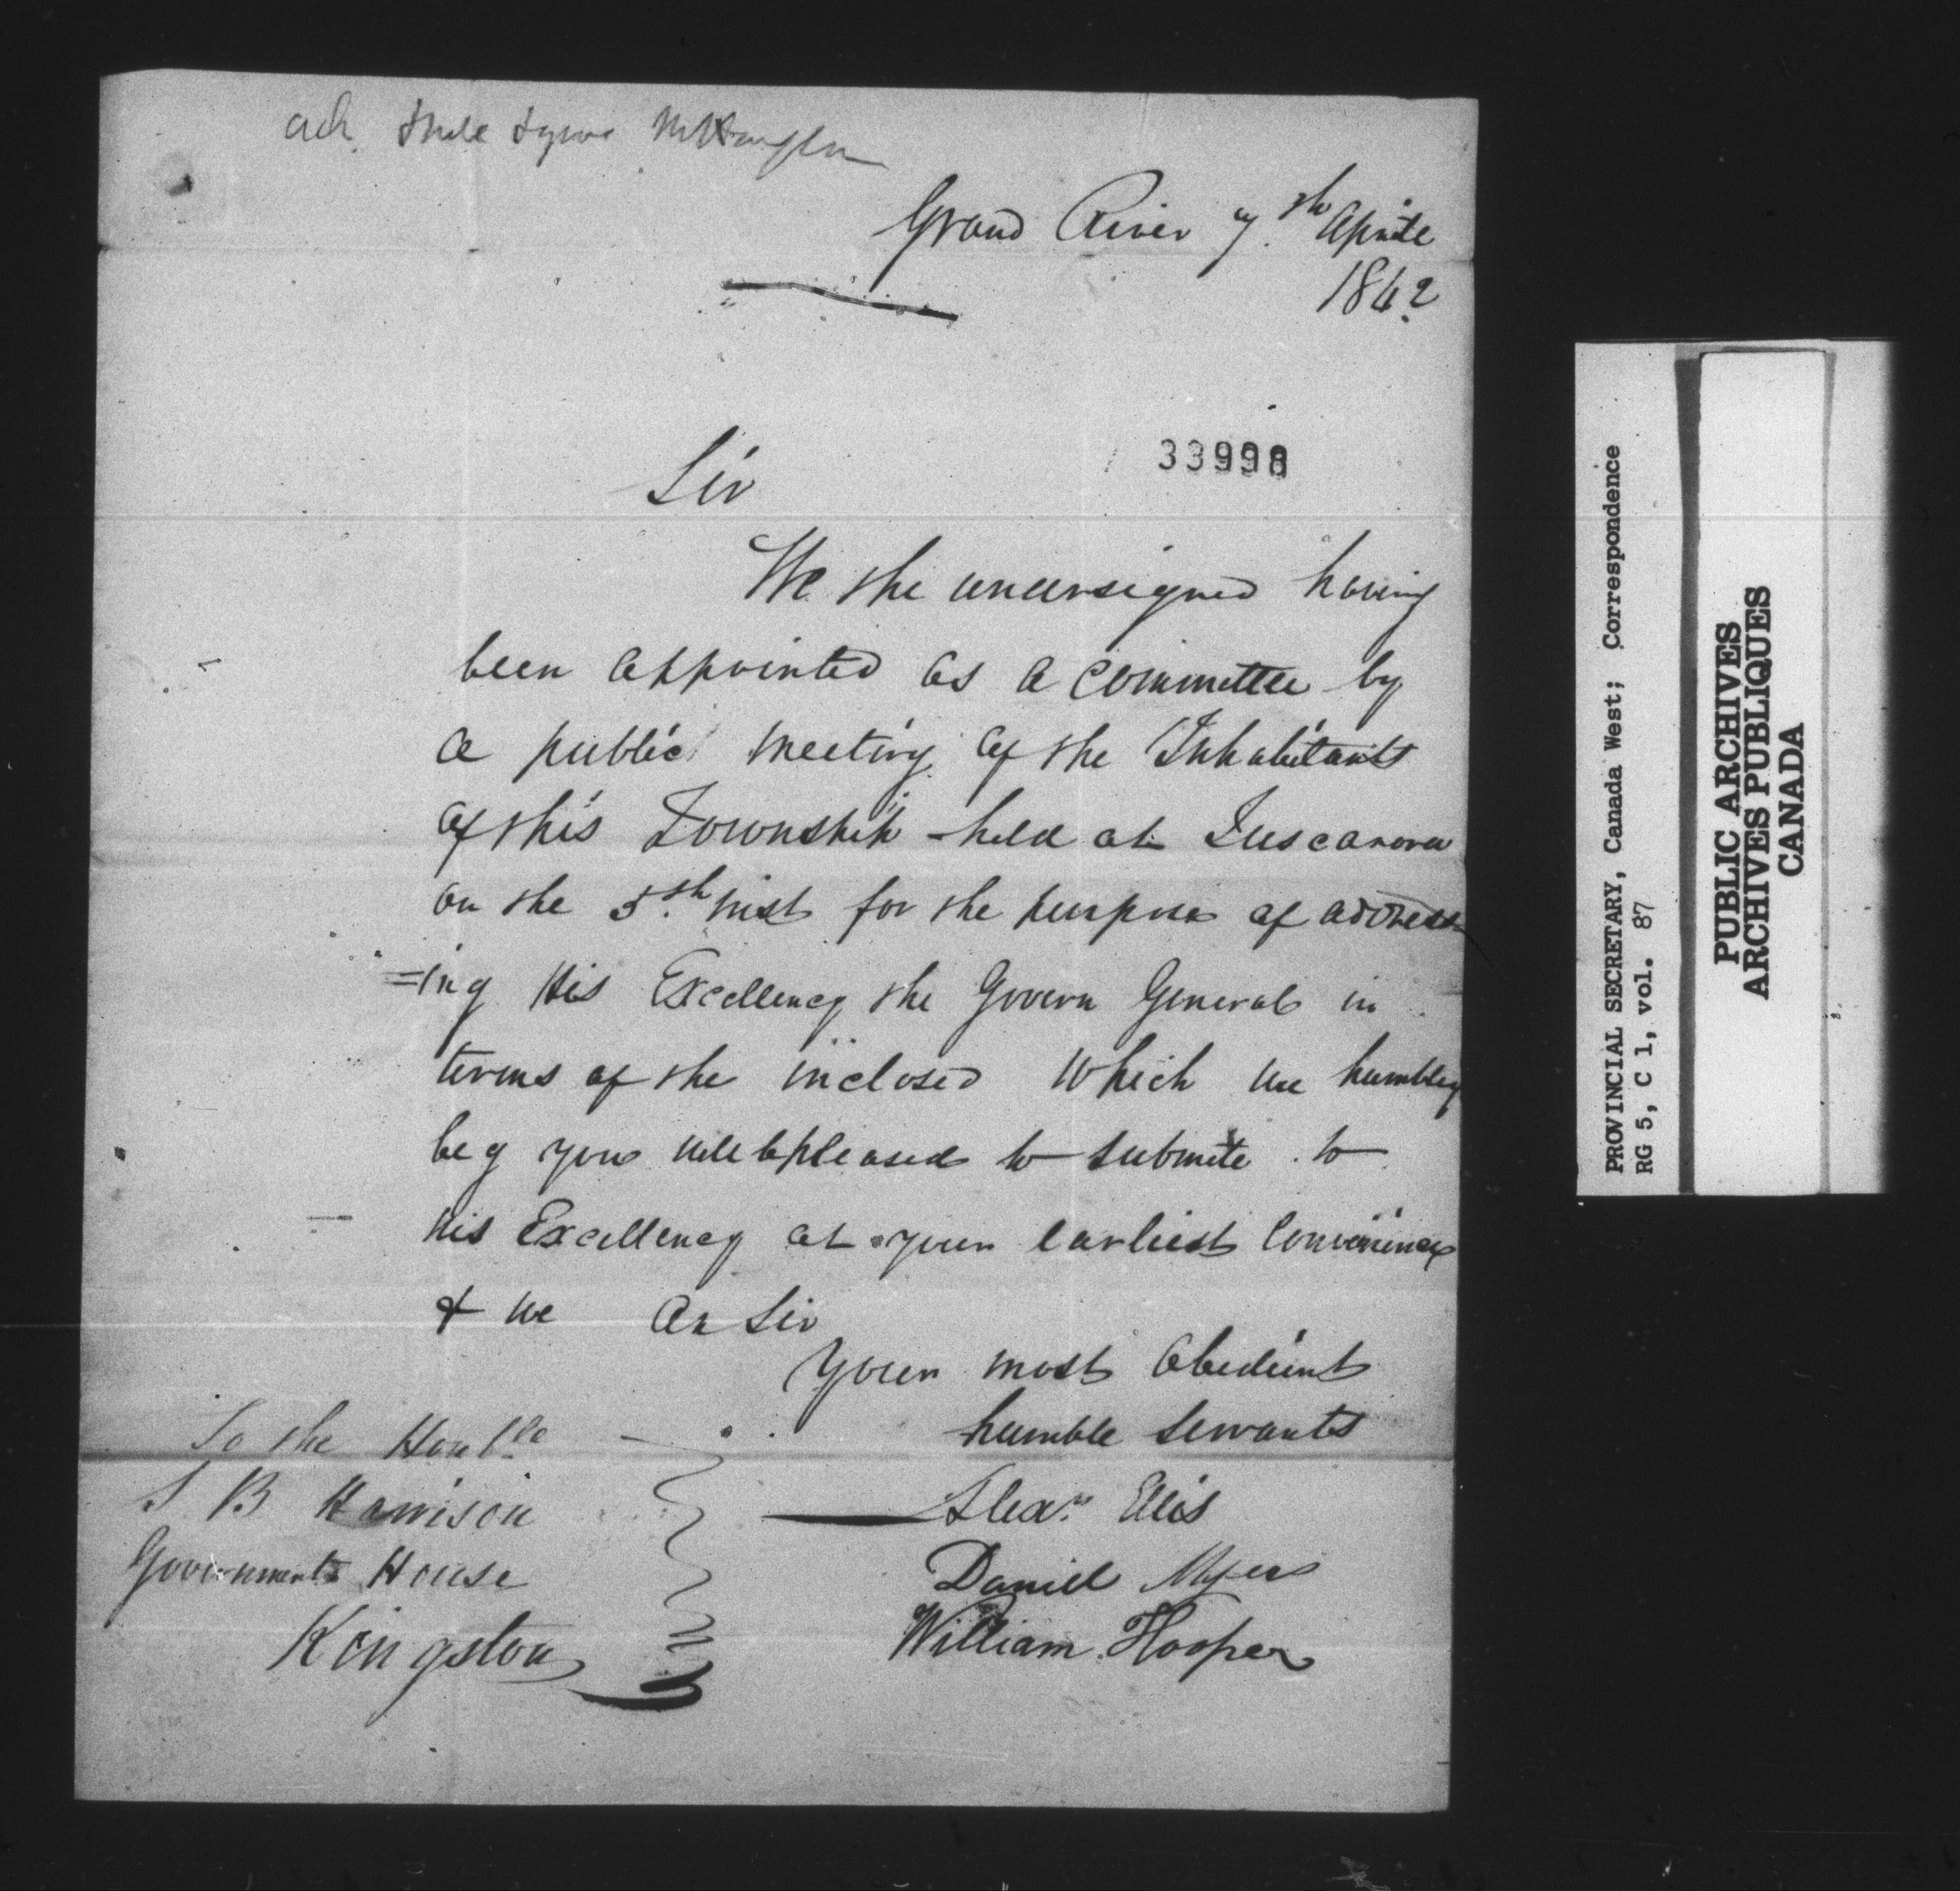 ack
Grand River 7th Aprile
1842
33998
Sir
We the undersigned having
been appointed as a committee by
a public meeting of the Inhabitants
of this Township held at Tuscarora
on the 5th inst for the purpose of address
=ing His Excellency the Govern General in
terms of the inclosed which we humbly
beg you will be pleased to submite to
his Excellency at your earliest Convenience
& we Ar Sir
Your most Obedient
humble Servants
To the Honble
S B Harrison
Government House
Kingston
Alexr Ellis
Daniel Myers
William Hooper
PROVINCIAL SECRETARY, Canada West; Correspondence
RG 5, C 1, vol. 87
PUBLIC ARCHIVES
ARCHIVES PUBLIQUES
CANADA